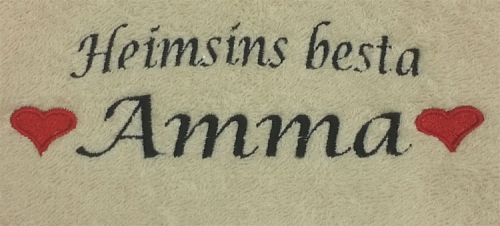 Heimsins besta
Amma